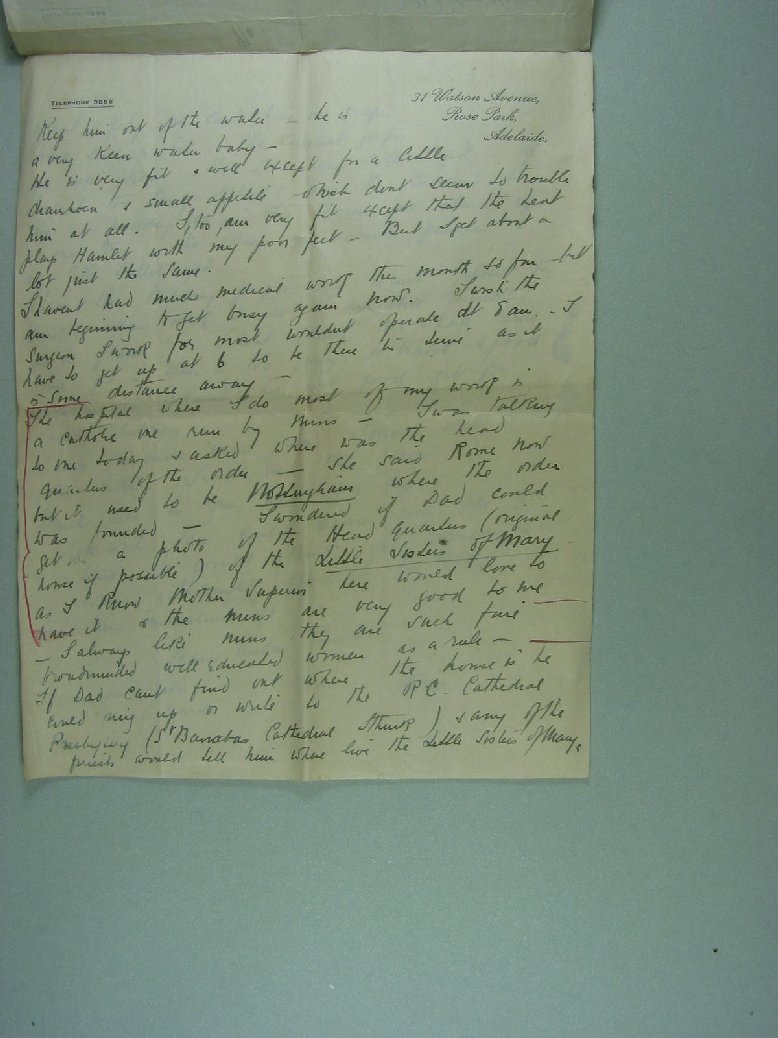 TELEPHONE
31 Watson Avenue,
Rose Park,
Adelaide.
Keep him out of the water – he is
a very keen water baby –
He is very fit & well except for a little
diarrhoea & small appetite which dont seem to trouble
him at all. I, too, am very fit except that the heat
plays Hamlet with my poor feet – But I get about a
lot just the same.
I havent had much medical work the month so far but
am beginning to get busy again now. I wish the
surgeon I work for most wouldnt operate at 8 am. – I
have to get up at 6 to be there in time as it
is some distance away –
The hospital where I do most of my work is
a Catholic one run by nuns – I was talking
to one today & asked where was the head
quarters of the order – She said Rome now
but it used to be Nottingham where the order
was founded – I wondered if Dad could
get a photo of the Head Quarters (original
house if possible) of the Little Sisters of Mary
as I know Mother Superior here would love to
have it & the nuns are very good to me
– I always like nuns they are such fine
broadminded well educated women as a rule –
If Dad cant find out where the house is he
could ring up or write to the R.C. Cathedral
Presbytery (St Barnabas Cathedral I think) & any of the
priests would tell him where live the Little Sisters of Mary.